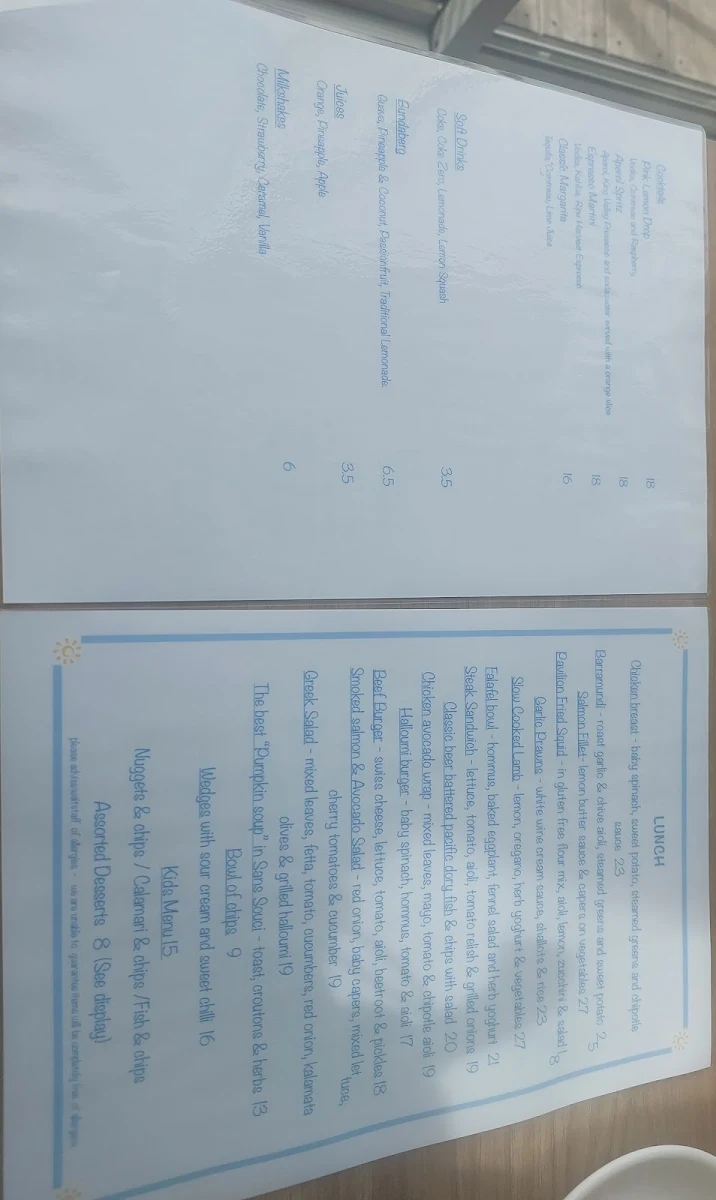 Cocktails
Pink Lemon Drop 18
Vodka, Cointreau and Raspberry
Aperol Spritz 18
Aperol, King Valley Prosecco and soda water served with a orange slice
Espresso Martini 18
Vodka, Kahlua, Ripe Harvest Espresso
Classic Margarita 16
Tequila, Cointreau, Lime Juice
Soft Drinks
Coke, Coke Zero, Lemonade, Lemon Squash 3.5
Bundaberg
Guava, Pineapple & Coconut, Passionfruit, Traditional Lemonade. 6.5
Juices
Orange, Pineapple, Apple 3.5
Milkshakes
Chocolate, Strawberry, Caramel, Vanilla 6
LUNCH
Chicken breast - baby spinach, sweet potato, steamed greens and chipotle
sauce 23
Barramundi - roast garlic & chive aioli, steamed greens and sweet potato 25
Salmon Fillet- lemon butter sauce & capers on vegetables 27
Pavilion Fried Squid - in gluten free flour mix, aioli, lemon, zucchini & salad 18
Garlic Prawns - white wine cream sauce, shallots & rice 23
Slow Cooked Lamb - lemon, oregano, herb yoghurt & vegetables 27
Falafel bowl - hommus, baked eggplant, fennel salad and herb yoghurt 21
Steak Sandwich - lettuce, tomato, aioli, tomato relish & grilled onions 19
Classic beer battered pacific dory fish & chips with salad 20
Chicken avocado wrap - mixed leaves, mayo, tomato & chipotle aioli 19
Halloumi burger - baby spinach, hommus, tomato & aioli 17
Beef Burger - swiss cheese, lettuce, tomato, aioli, beetroot & pickles 18
Smoked salmon & Avocado Salad - red onion, baby capers, mixed lettuce,
cherry tomatoes & cucumber 19
Greek Salad - mixed leaves, fetta, tomato, cucumbers, red onion, kalamata
olives & grilled halloumi 19
The best "Pumpkin soup" in Sans Souci - toast, croutons & herbs 13
Bowl of chips 9
Wedges with sour cream and sweet chilli 16
Kids Menu 15
Nuggets & chips / Calamari & chips /Fish & chips
Assorted Desserts 8 (See display)
please advise waitstaff of allergies - we are unable to guarantee items will be completely free of allergens